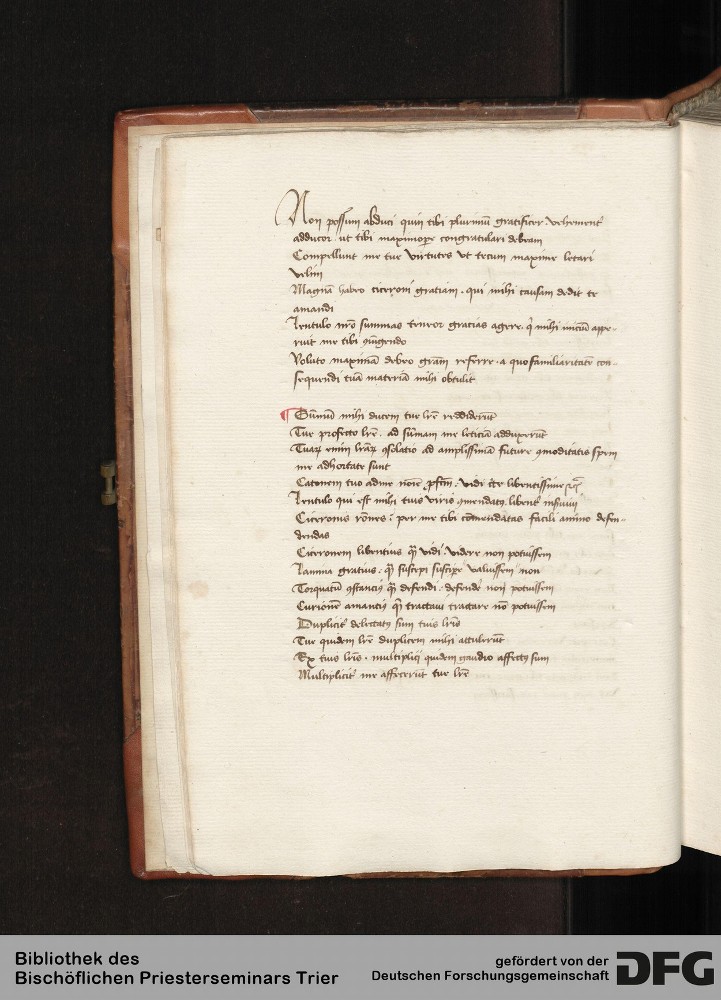 Non possum abduci quin tibi plurimū gratificer vehement᷑
adducor. ut tibi maximoꝑe congratulari debeam
Compellunt me tue virtutes ut tecum maxime letari
velim
Magnā habeo ciceroni gratiam. qui mihi causam dedit te
amandi
Lentulo nr̄o summas teneor gracias agere. ꝙ mihi appe-
ruit me tibi ꝯiūgendo
Voluto maximā debeo grām referre. a quo familiaritatē con-
sequendi tuā materiā mihi obtulit
Sūmū mihi ducem tue lr̄e reddiderūt
Tue profecto lr̄e. ad sūmam me leticiā adduxerūt
Tuaꝝ enim lr̄aꝝ ꝯsolatio ad amplissimā future ꝯmoditatis spem
me adhortate sunt
Catonem tuo ad me noīe ꝓfcm̄. vidi libentissime
Lentulo qui est mihi tuis ꝯmendatꝰ. libent᷑
Ciceronis per me tibi cōmendatas facili animo defen-
dendas
Ciceronem libentius ꝙ̄ vidi. videre non potuissem
Lamina gratius. ꝙ̄ suscepi suscipe valuissem non
Torquatū ꝯstanciꝰ ꝙ̄ defendi. defendē non potuissem
Curionē amanciꝰ ꝙ̄ tractavi tractare nō potuissem
Duplicit᷑ delectatꝰ sum tuis lr̄is
Tue quidem lr̄e duplicem mihi attulerūt
Ex tuis lr̄is. multiplici quidem gaudio affectꝰ sum
Multiplicit᷑ me affecerūt tue lr̄e
Bibliothek des
Bischöflichen Priesterseminars Trier
gefördert von der
Deutschen Forschungsgemeinschaft DFG